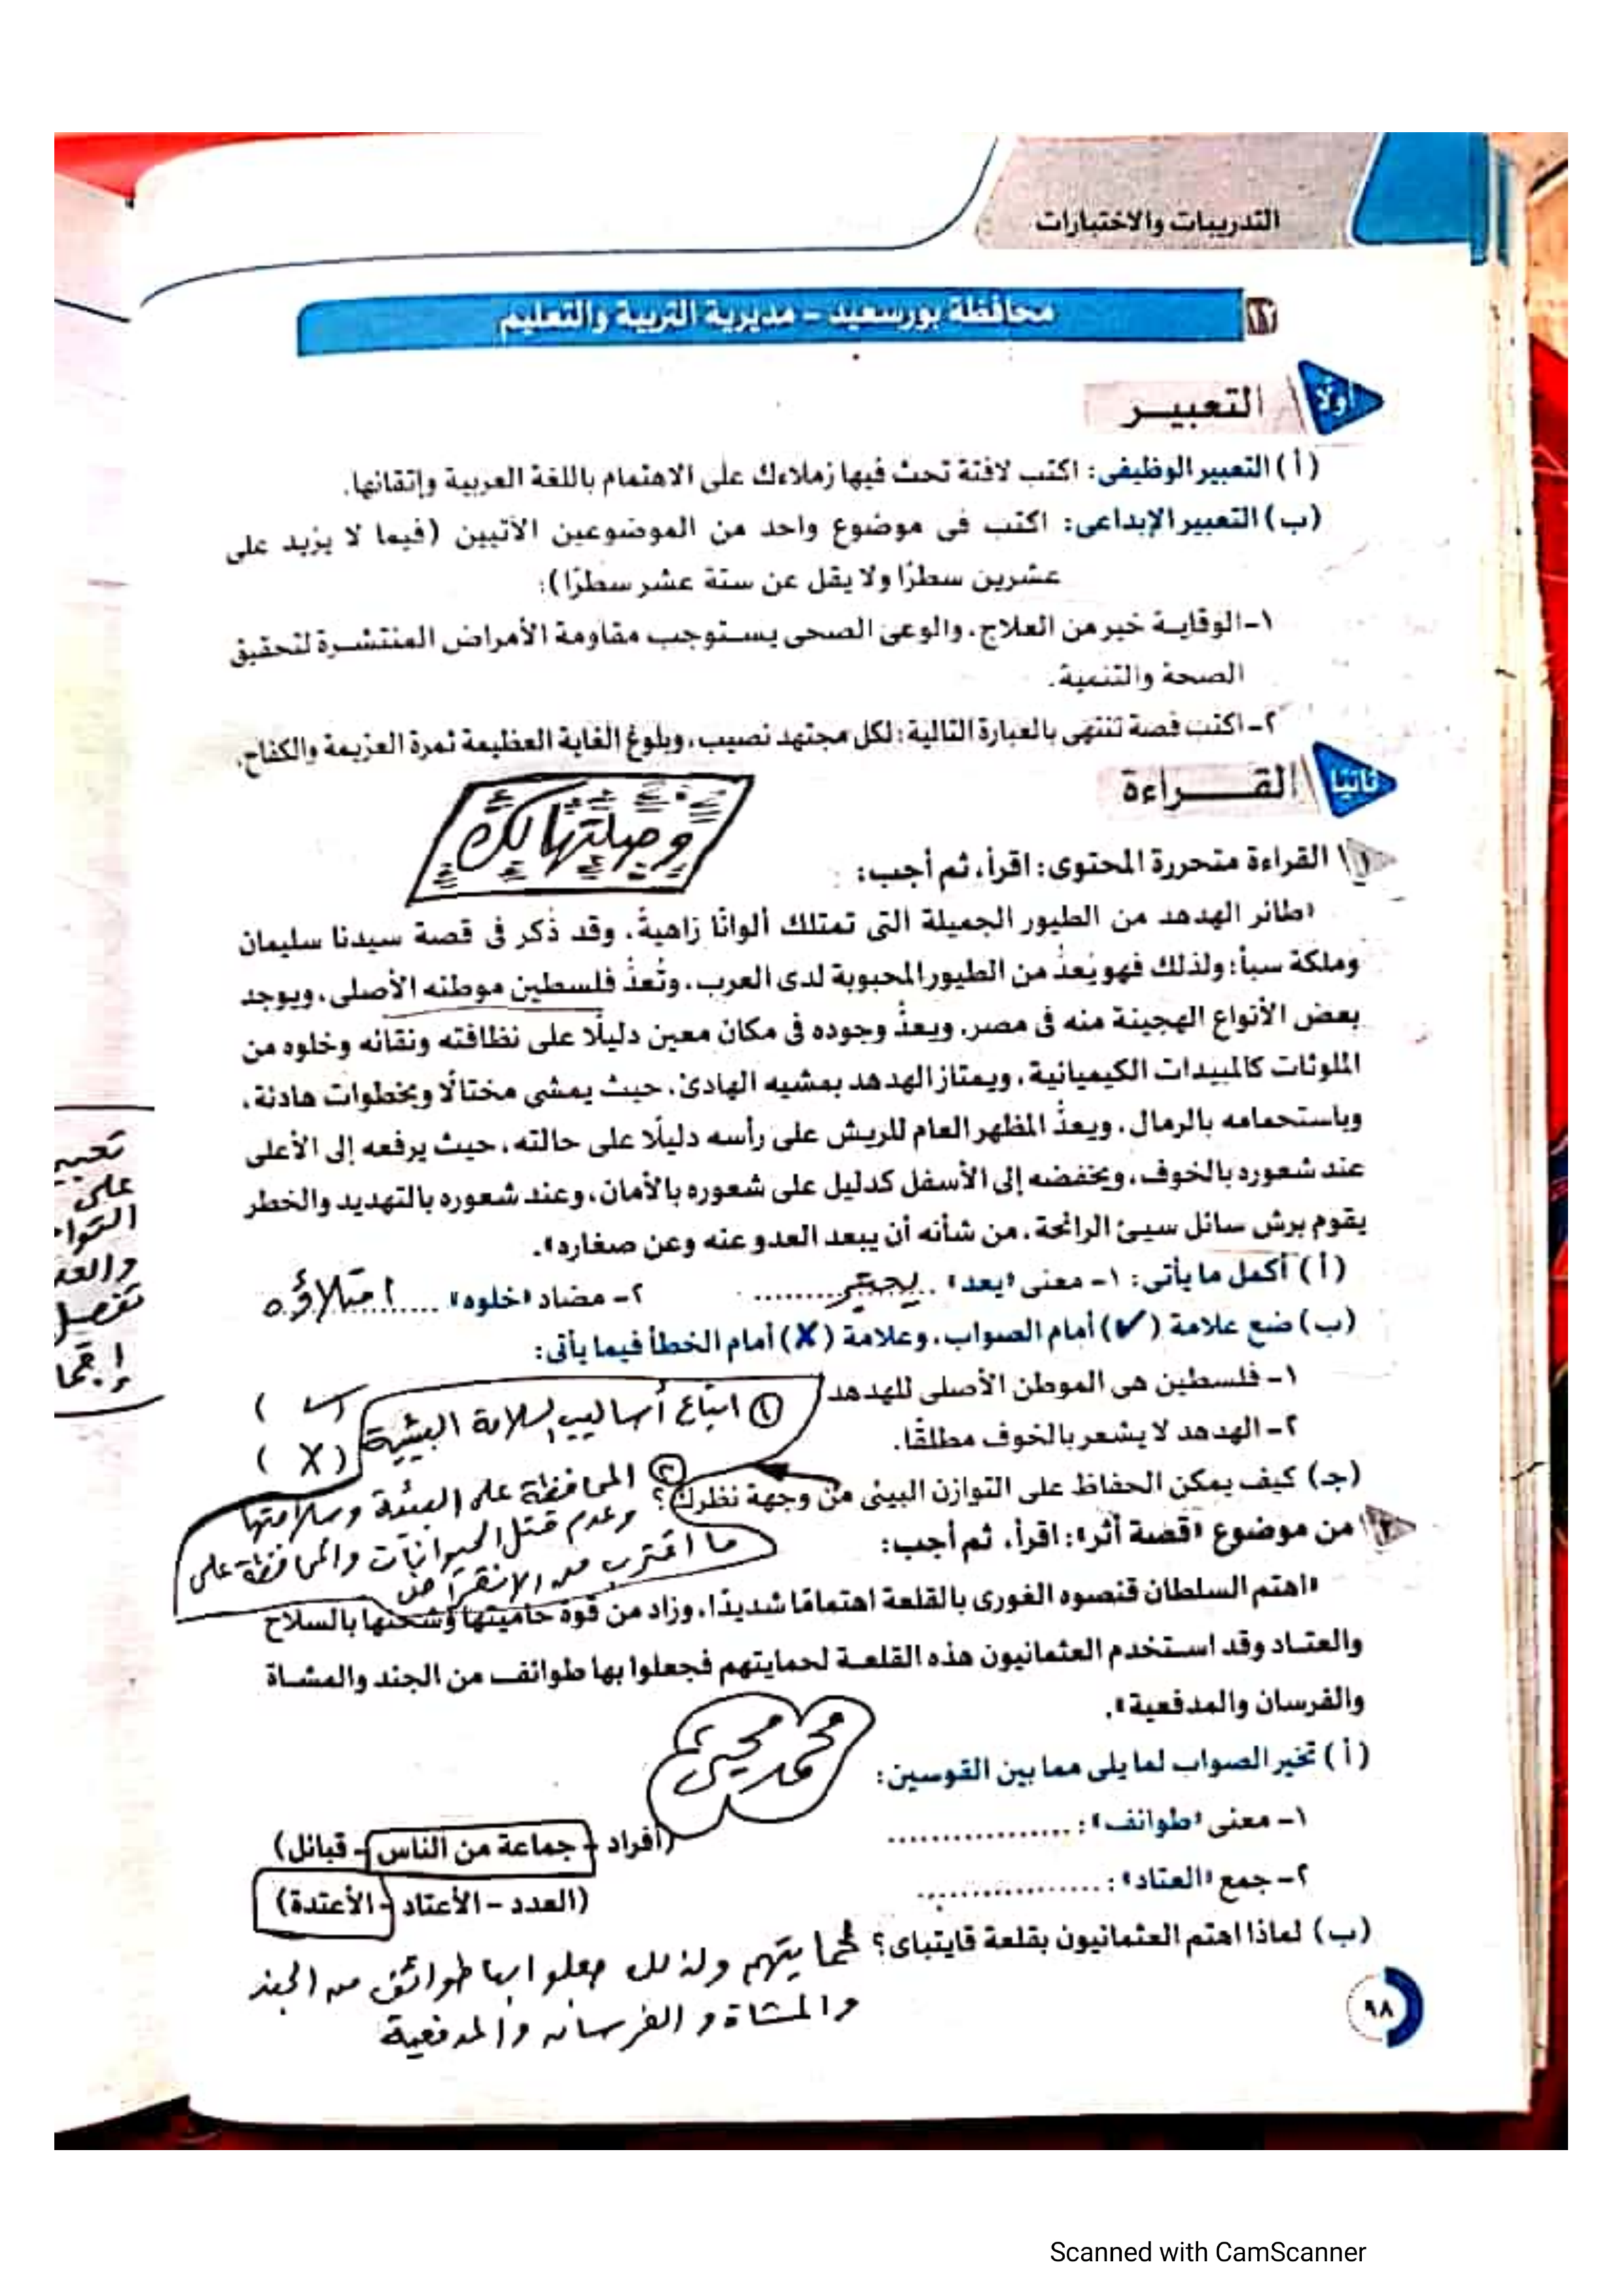 التدريبات والاختبارات
١٢ محافظة بورسعيد - مديرية التربية والتعليم
أولًا التعبير
(أ) التعبير الوظيفى: اكتب لافتة تحث فيها زملاءك على الاهتمام باللغة العربية وإتقانها.
(ب) التعبير الإبداعى: اكتب فى موضوع واحد من الموضوعين الآتيين (فيما لا يزيد على
عشرين سطرًا ولا يقل عن ستة عشر سطرًا):
١- الوقاية خير من العلاج، والوعى الصحى يستوجب مقاومة الأمراض المنتشرة لتحقيق
الصحة والتنمية.
٢- اكتب قصة تنتهى بالعبارة التالية: لكل مجتهد نصيب، وبلوغ الغاية العظيمة ثمرة العزيمة والكفاح.
ثانيًا القراءة
وصيلتهالك
١ القراءة متحررة المحتوى: اقرأ، ثم أجب:
«طائر الهدهد من الطيور الجميلة التى تمتلك ألوانًا زاهيةً، وقد ذُكر فى قصة سيدنا سليمان
وملكة سبأ؛ ولذلك فهو يُعدُّ من الطيور المحبوبة لدى العرب، وتُعدُّ فلسطين موطنه الأصلى، ويوجد
بعض الأنواع الهجينة منه فى مصر، ويعدُّ وجوده فى مكان معين دليلًا على نظافته ونقائه وخلوه من
الملوثات كالمبيدات الكيميائية، ويمتاز الهدهد بمشيه الهادئ، حيث يمشى مختالًا وبخطوات هادئة،
وباستحمامه بالرمال، ويعدُّ المظهر العام للريش على رأسه دليلًا على حالته، حيث يرفعه إلى الأعلى
عند شعوره بالخوف، ويخفضه إلى الأسفل كدليل على شعوره بالأمان، وعند شعوره بالتهديد والخطر
يقوم برش سائل سيئ الرائحة، من شأنه أن يبعد العدو عنه وعن صغاره».
(أ) أكمل ما يأتى: ١- معنى «يعد» يعتبر ٢- مضاد «خلوه» امتلاؤه
(ب) ضع علامة (✓) أمام الصواب، وعلامة (✗) أمام الخطأ فيما يأتى:
١- فلسطين هى الموطن الأصلى للهدهد (✓)
٢- الهدهد لا يشعر بالخوف مطلقًا. (X)
(جـ) كيف يمكن الحفاظ على التوازن البيئى من وجهة نظرك؟
① اتباع أساليب السلامة البيئية
② المحافظة على البيئة وسلامتها
وعدم قتل الحيوانات والمحافظة على
ما اقترب من الانقراض
٢ من موضوع «قصة أثر»: اقرأ، ثم أجب:
«اهتم السلطان قنصوه الغورى بالقلعة اهتمامًا شديدًا، وزاد من قوة حاميتها وشحنها بالسلاح
والعتاد وقد استخدم العثمانيون هذه القلعة لحمايتهم فجعلوا بها طوائف من الجند والمشاة
والفرسان والمدفعية».
محمد محيي
(أ) تخير الصواب لما يلى مما بين القوسين:
١- معنى «طوائف»: ................. (أفراد - جماعة من الناس - قبائل)
٢- جمع «العتاد»: ................. (العدد - الأعتاد - الأعتدة)
(ب) لماذا اهتم العثمانيون بقلعة قايتباى؟ لحمايتهم ولذلك جعلوا بها طوائف من الجند
والمشاة و الفرسان والمدفعية
٩٨
تعبير
على
Scanned with CamScanner